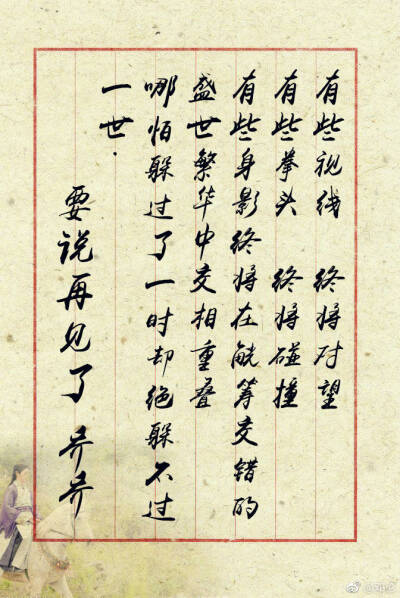 有些视线 终将对望
有些拳头 终将碰撞
有些身影终将在觥筹交错的
盛世繁华中交相重叠
哪怕躲过了一时却绝躲不过
一世.
要说再见了 乔乔